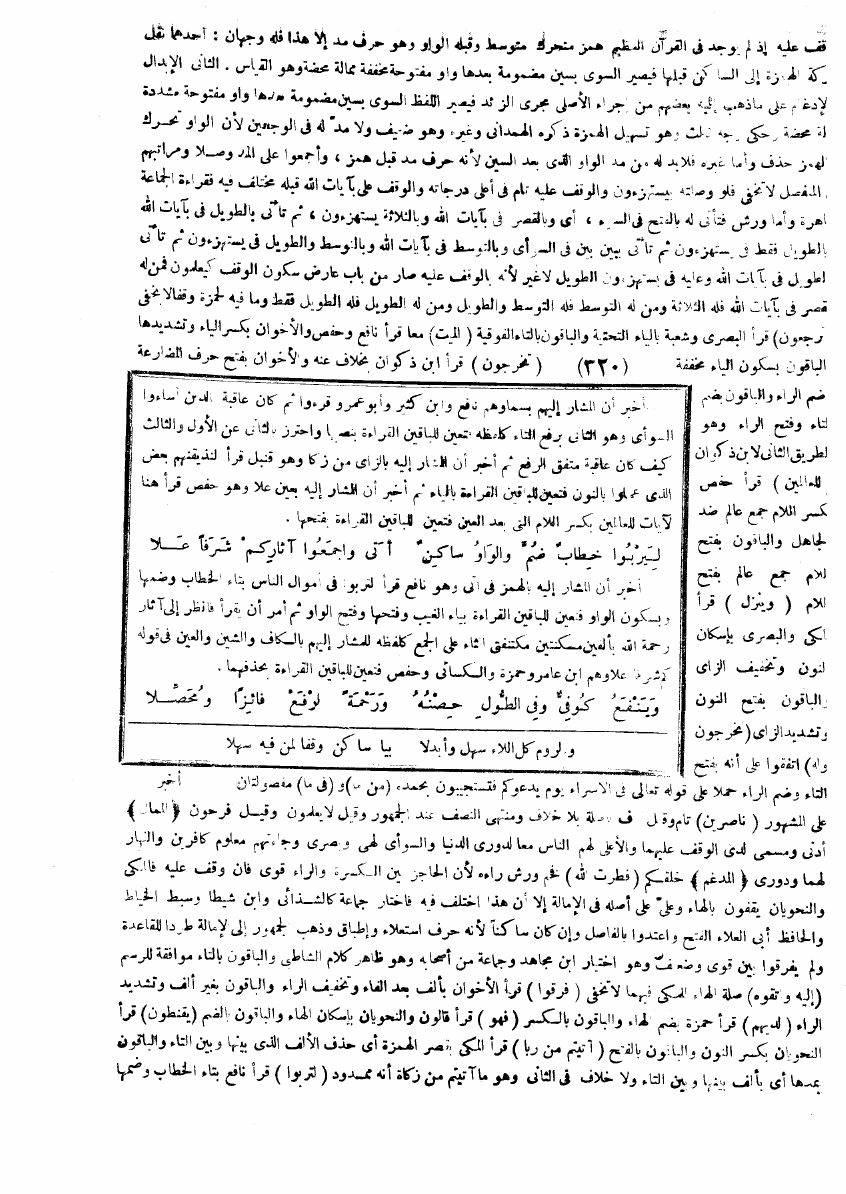 قف عليه إذ لم يوجد فى القرآن العظيم همز متحرك متوسط وقبله الواو وهو حرف مد إلا هذا فله وجهان : أحدهما نقل
ركة الهمزة إلى الساكن قبلها فيصير السوى بسين مضمومة بعدها واو مفتوحة مخففة ممالة محضة وهو القياس . الثانى الإبدال
لإدغام على ماذهب إليه بعضهم من إجراء الأصلى مجرى الزائد فيصير اللفظ السوى بسين مضمومة بعدها واو مفتوحة مشددة
لة محضة وحكى وجه ثالث وهو تسهيل الهمزة ذكره الهمدانى وغيره وهو ضعيف ولا مد له فى الوجهين لأن الواو تحرك
الهمز حذف وأما غيره فلابد له من مد الواو الذى بعد السين لأنه حرف مد قبل همز ، وأجمعوا على المد وصلا ومراتبهم
المنفصل لاتخفى فلو وصلته بيستهزءون والوقف عليه تام فى أعلى درجاته والوقف على بآيات الله قبله مختلف فيه فقراءة الجماعة
اهرة وأما ورش فتأتى له بالفتح فى السوء ، أى وبالقصر فى بآيات الله وبالثلاثة يستهزءون ، ثم تأتى بالطويل فى بآيات الله
بالطويل فقط فى يستهزءون ثم تأتى بين بين فى السوأى وبالتوسط فى بآيات الله وبالتوسط والطويل فى يستهزءون ثم تأتى
لطويل فى بآيات الله وعليه فى يستهزءون الطويل لاغير لأنه بالوقف عليه صار من باب عارض سكون الوقف كيعلمون فمن له
قصر فى بآيات الله فله الثلاثة ومن له التوسط فله التوسط والطويل ومن له الطويل فله الطويل فقط وما فيه لحمزة وقفا لايخفى
ترجعون) قرأ البصرى وشعبة بالياء التحتية والباقون بالتاء الفوقية (الميت) معا قرأ نافع وحفص والأخوان بكسر الياء وتشديدها
الباقون بسكون الياء مخففة (٣٢٠) (تخرجون) قرأ ابن ذكوان بخلاف عنه والأخوان بفتح حرف المضارعة
ضم الراء والباقون بضم
لتاء وفتح الراء وهو
لطريق الثانى لابن ذكوان
للعالمين) قرأ حفص
بكسر اللام جمع عالم ضد
لجاهل والباقون بفتح
للام جمع عالم بفتح
للام (وينزل) قرأ
لمكى والبصرى بإسكان
لنون وتخفيف الزاى
والباقون بفتح النون
وتشديد الزاى (تخرجون
وله) اتفقوا على أنه بفتح
أخبر أن المشار إليهم بسماوهم نافع وابن كثير وأبو عمرو قرءوا ثم كان عاقبة الذين أساءوا
السوأى وهو الثانى برفع التاء كلفظه فتعين للباقين القراءة بنصبها واحترز بالثانى عن الأول والثالث
كيف كان عاقبة متفق الرفع ثم أخبر أن المشار إليه بالزاى من زكا وهو قنبل قرأ لنذيقنهم بعض
الذى عملوا بالنون فتعين للباقين القراءة بالياء ثم أخبر أن المشار إليه بعين علا وهو حفص قرأ هنا
لآيات للعالمين بكسر اللام التى بعد العين فتعين للباقين القراءة بفتحها .
لِيَرْبُوا خِطَابٌ ضُمَّ والوَاوُ سَاكِنٌ أتَى واجمَعُوا آثارِ كمْ شَرَفًا عَلا
أخبر أن المشار إليه بالهمز فى أتى وهو نافع قرأ لتربوا فى أموال الناس بتاء الخطاب وضمها
وبسكون الواو فتعين للباقين القراءة بياء الغيب وفتحها وفتح الواو ثم أمر أن يقرأ فانظر إلى آثار
رحمة الله بألفين مسكنتين مكتنفتى الثاء على الجمع كلفظه للمشار إليهم بالكاف والشين والعين فى قوله
كم شرفا علاوهم ابن عامر وحمزة والكسائى وحفص فتعين للباقين القراءة بحذفهما .
وَيَنْفَعُ كُوفِيٌّ وفِي الطُّولِ حِصْنُهُ وَرَحْمَةً ارْفَعْ فائِزًا ومُحَصِّلا
ولروم كل اللاء سهل وأبدلا بيا ساكن وقفا لمن فيه سهلا
التاء وضم الراء حملا على قوله تعالى فى الاسراء يوم يدعوكم فتستجيبون بحمده (من ما) و(فى ما) مفصولتان أخبر
على المشهور (ناصرين) تام وقيل ف صلة بلا خلاف ومنتهى النصف عند الجمهور وقيل لايعلمون وقيل فرحون ﴿الممال﴾
أدنى ومسمى لدى الوقف عليهما والأعلى لهم الناس معا لدورى الدنيا والسوأى لهى وبصرى وجاءتهم معلوم كافرين والنهار
لهما ودورى ﴿المدغم﴾ خلقكم (فطرت الله) فخم ورش راءه لأن الحاجز بين الكسرة والراء قوى فان وقف عليه فالمكى
والنحويان يقفون بالهاء وعلى على أصله فى الإمالة إلا أن هذا اختلف فيه فاختار جماعة كالشذائى وابن شيطا وسبط الخياط
والحافظ أبى العلاء الفتح واعتدوا بالفاصل وإن كان ساكناً لأنه حرف استعلاء وإطباق وذهب الجمهور إلى الإمالة طردا للقاعدة
ولم يفرقوا بين قوى وضعيف وهو اختيار ابن مجاهد وجماعة من أصحابه وهو ظاهر كلام الشاطبى والباقون بالتاء موافقة للرسم
(إليه واتقوه) صلة الهاء للمكى فيهما لاتخفى (فرقوا) قرأ الأخوان بألف بعد الفاء وتخفيف الراء والباقون بغير ألف وتشديد
الراء (لديهم) قرأ حمزة بضم الهاء والباقون بالكسر (فهو) قرأ قالون والنحويان بإسكان الهاء والباقون بالضم (يقنطون) قرأ
النحويان بكسر النون والباقون بالفتح (آتيتم من ربا) قرأ المكى بقصر الهمزة أى حذف الألف الذى بينها وبين التاء والباقون
بمدها أى بألف بينها وبين التاء ولا خلاف فى الثانى وهو ما آتيتم من زكاة أنه ممدود (لتربوا) قرأ نافع بتاء الخطاب وضمها